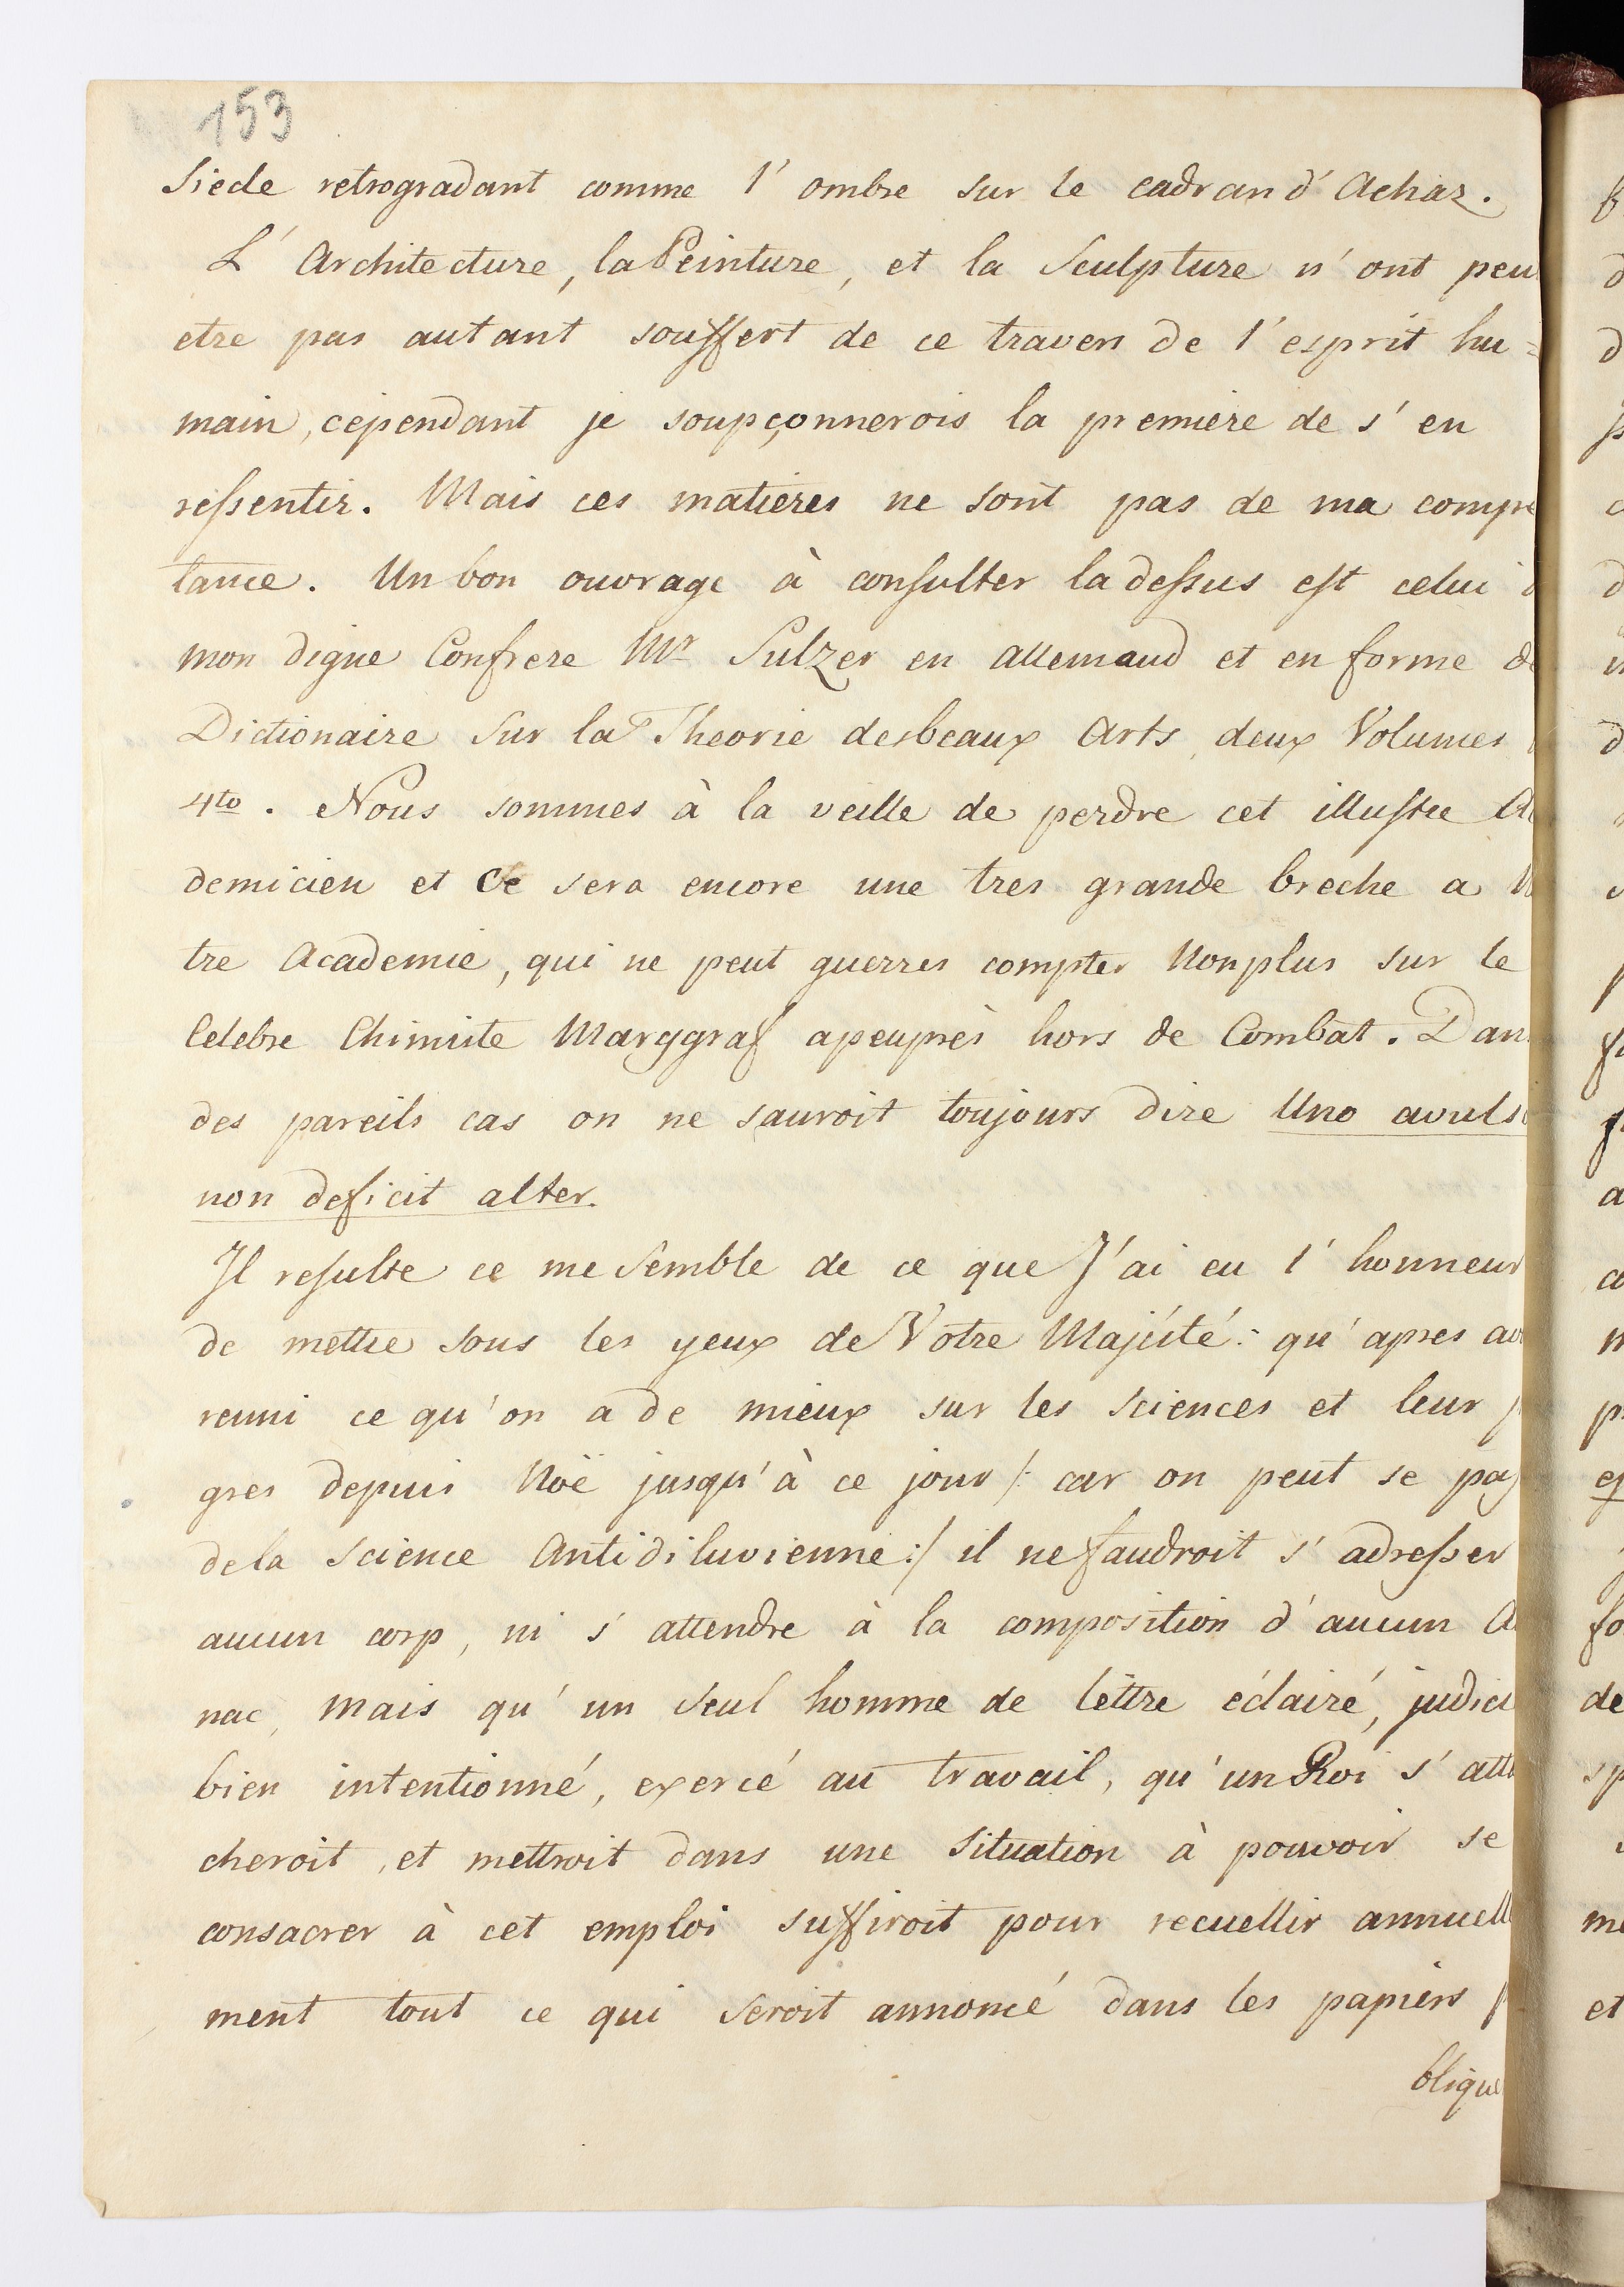 153
Siecle retrogradant comme l' ombre sur le cadran d' Achaz.
L' Architecture, la Peinture, et la Sculpture n' ont peu
etre pas autant souffert de ce travers de l' esprit hu =
main, cependant je soupçonnerois la premiere de s' en
reſsentir. Mais ces matieres ne sont pas de ma compe
tance. Un bon ouvrage à conſulter la deſsus eſt celui d
mon digne Confrere Mr Sulzer en allemand et en forme de
Dictionaire sur la Theorie des beaux Arts, deux Volumes
4to. Nous sommes à la veille de perdre cet illuſtre Ac
demicien et Ce sera encore une tres grande breche a No
tre Academie, qui ne peut guerres compter Non plus sur le
Celebre Chimiste Marggraf apeuprès hors de Combat. Dans
des pareils cas on ne sauroit toujours dire Uno avulso
non deficit alter.
Il reſulte ce me semble de ce que J'ai eu l' honneur
de mettre sous les yeux de Votre Majésté: qu' apres av
reuni ce qu'on a de mieux sur les sciences et leur p
gres depuis Noë jusqu'à ce jour /: car on peut se paſ
de la science Antidiluvienne :/ il ne faudroit s' adreſser
aucun corp, ni s' attendre à la composition d' aucun A
nac, mais qu' un seul homme de lettre éclairé, judici
bien intentionné, exercé au travail, qu' un Roi s' atta
cheroit, et mettroit dans une situation à pouvoir se
consacrer à cet emploi suffiroit pour recuellir annuell
ment tout ce qui seroit annoncé dans les papiers p
blique